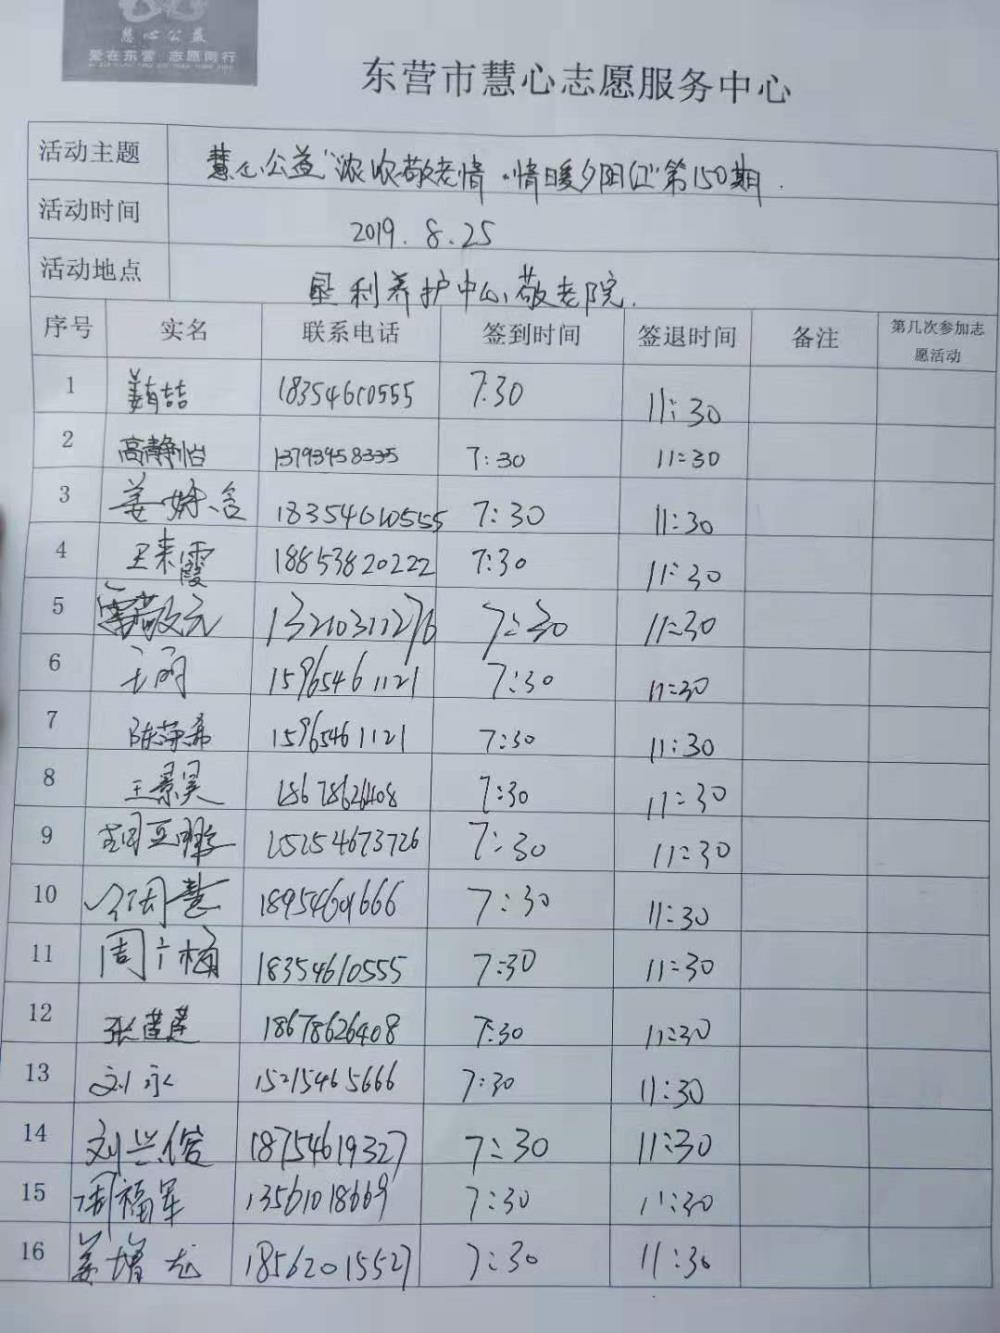 慧心公益
爱在东营 志愿同行
东营市慧心志愿服务中心
活动主题 慧心公益"浓浓敬老情·情暖夕阳红"第150期.
活动时间 2019.8.25
活动地点 垦利养护中心敬老院.
序号 实名 联系电话 签到时间 签退时间 备注 第几次参加志
愿活动
1 姜喆 18354610555 7:30 11:30
2 高静怡 13793458335 7:30 11:30
3 姜姝含 18354610555 7:30 11:30
4 王来霞 18853820222 7:30 11:30
5 13210311276 7:30 11:30
6 王丽 15965461121 7:30 11:30
7 陈萍希 15965461121 7:30 11:30
8 王景昊 18678626408 7:30 11:30
9 15254673726 7:30 11:30
10 18954601666 7:30 11:30
11 周广梅 18354610555 7:30 11:30
12 张莲莲 18678626408 7:30 11:30
13 刘永 15215465666 7:30 11:30
14 刘兴俊 18754619327 7:30 11:30
15 周福军 13561018669 7:30 11:30
16 姜增龙 18562015527 7:30 11:30